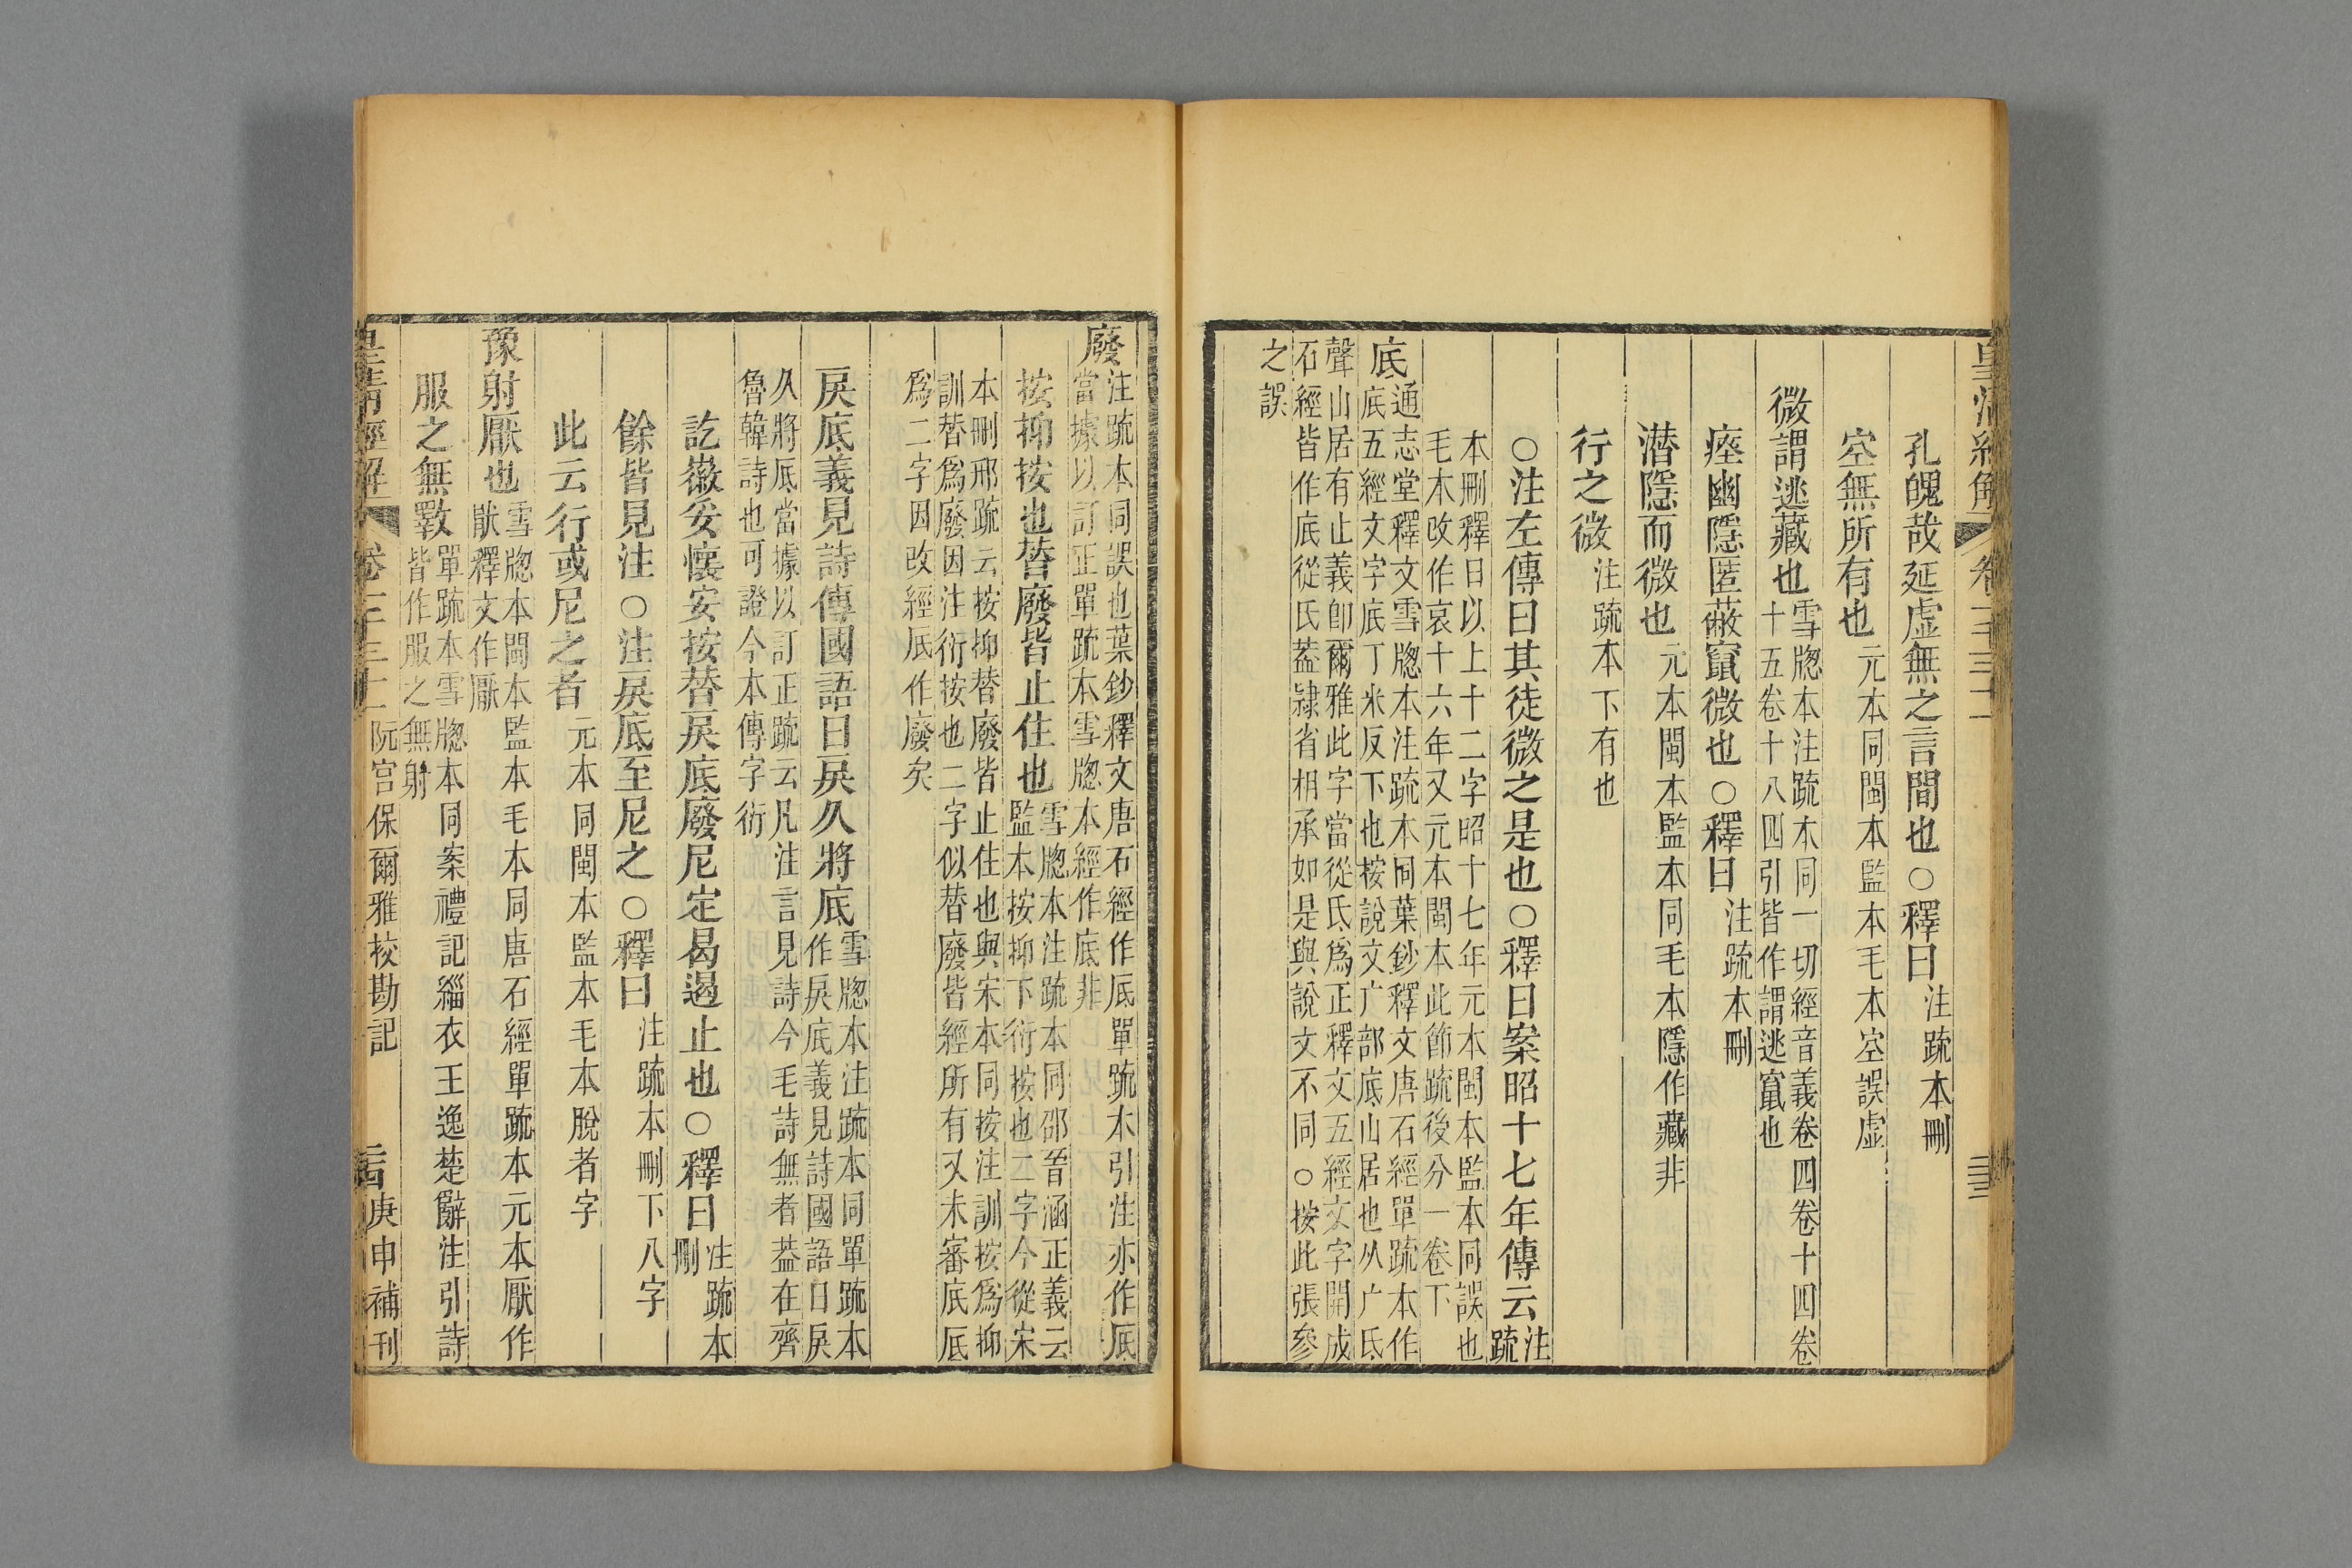 皇清經解 卷一千三十二 三十三
孔魄哉延虛無之言間也○釋曰注疏本刪
空無所有也元本同閩本監本毛本空誤虛
微謂逃藏也雪牕本注疏本同一切經音義卷四卷十四卷
十五卷十八四引皆作謂逃竄也
瘞幽隱匿蔽竄微也○釋曰注疏本刪
潛隱而微也元本閩本監本同毛本隱作藏非
行之微注疏本下有也
○注左傳曰其徒微之是也○釋曰案昭十七年傳云注
疏
本刪釋曰以上十二字昭十七年元本閩本監本同誤也
毛本改作哀十六年又元本閩本此節疏後分一卷下
底通志堂釋文雪牕本注疏本同葉鈔釋文唐石經單疏本作
底五經文字底丁米反下也按說文广部底山居也从广氐
聲山居有止義卽爾雅此字當從氐爲正釋文五經文字開成
石經皆作底從氏蓋隸省相承如是與說文不同○按此張參
之誤
廢注疏本同誤也葉鈔釋文唐石經作厎單疏本引注亦作厎
當據以訂正單疏本雪牕本經作底非
按抑按也替廢皆止住也雪牕本注疏本同邵晉涵正義云
監本按抑下衍按也二字今從宋
本刪邢疏云按抑替廢皆止住也與宋本同按注訓按爲抑
訓替爲廢因注衍按也二字似替廢皆經所有又未審底厎
爲二字因改經厎作廢矣
戾底義見詩傳國語曰戾久將底雪牕本注疏本同單疏本
作戾底義見詩國語曰戾
久將厎當據以訂正疏云凡注言見詩今毛詩無者蓋在齊
魯韓詩也可證今本傳字衍
訖徽妥懷安按替戾底廢尼定曷遏止也○釋曰注疏本
刪
餘皆見注○注戾底至尼之○釋曰注疏本刪下八字
此云行或尼之者元本同閩本監本毛本脫者字
豫射厭也雪牕本閩本監本毛本同唐石經單疏本元本厭作
猒釋文作厭
服之無斁單疏本雪牕本同案禮記緇衣王逸楚辭注引詩
皆作服之無射
皇清經解 卷一千三十二 阮宮保爾雅挍勘記 三十四 庚申補刊